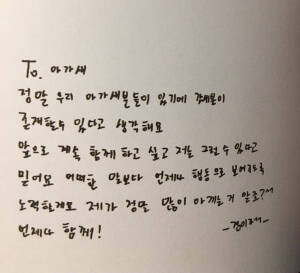 To. 아가새
정말 우리 아가새분들이 있기에 갓세븐이
존재할수 있다고 생각해요
앞으로 계속 함께 하고 싶고 저는 그럴 수 있다고
믿어요 어떠한 말보다 언제나 행동으로 보여주도록
노력할게요 제가 정말 많이 아끼는 거 알죠?
언제나 함께!